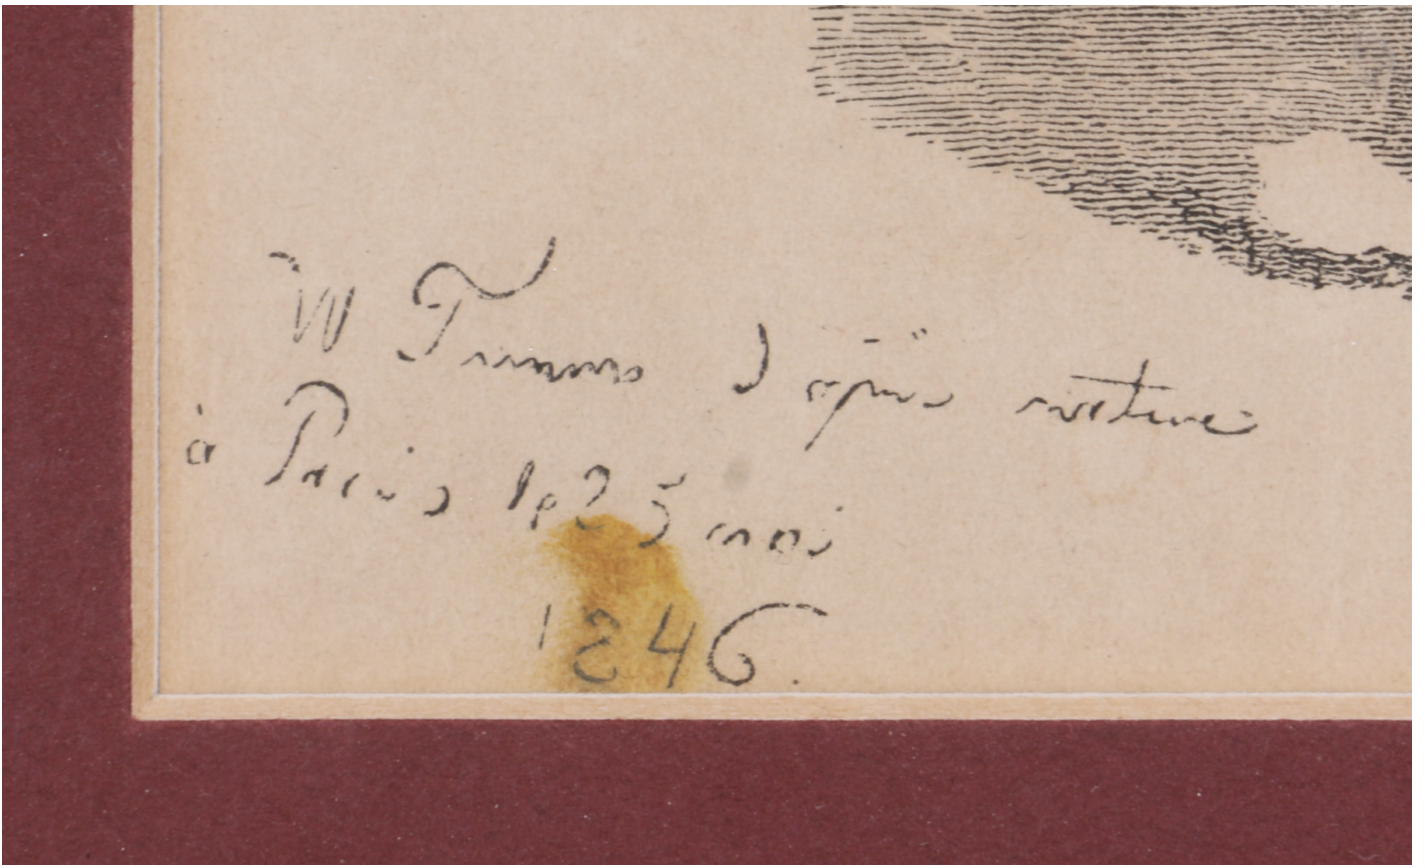 W d'après nature
à Paris le 25 mai
1846.